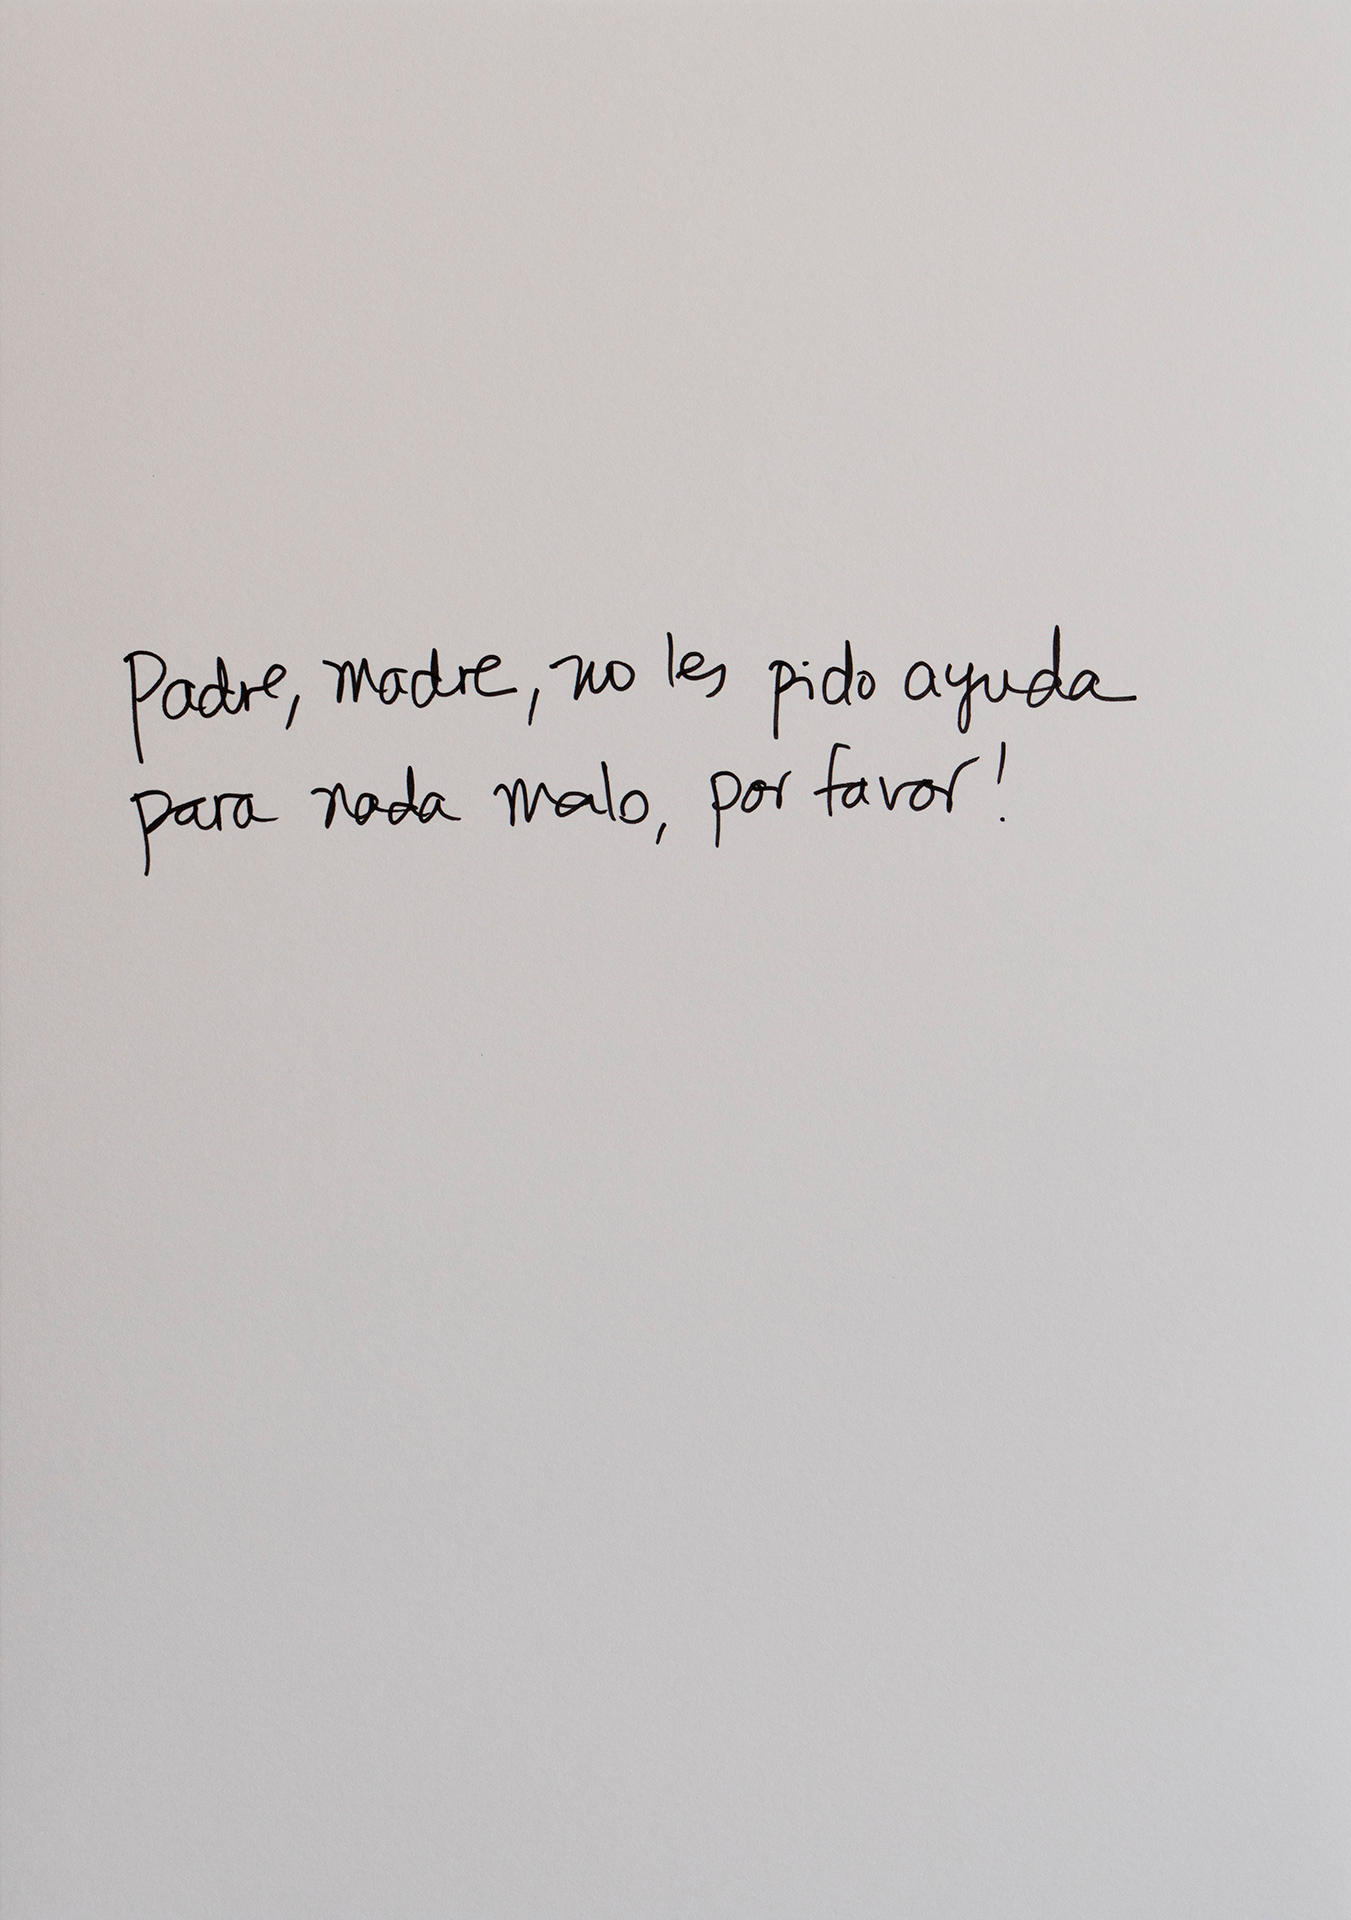 Padre, madre, no les pido ayuda
para nada malo, por favor!